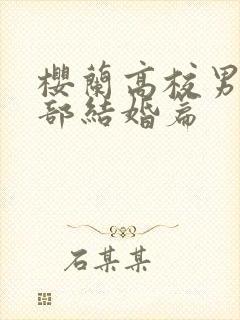 櫻蘭高校男
部結婚篇
石某某